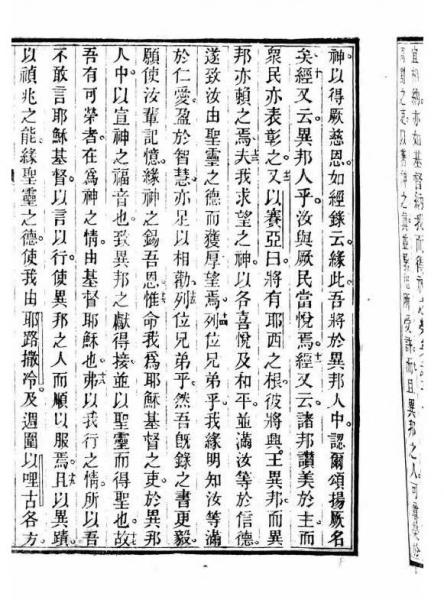 宜相納亦如基督納我而得
之吏以 神之 並 所受許而且異邦之人可 榮於
神以得厥慈恩。如經錄云緣此吾將於異邦人中。認爾頌揚厥名
矣。經又云。異邦人乎。汝與厥民當悅焉。經又云。諸邦讚美於主。而
衆民亦表彰之。又以賽亞曰。將有耶西之根。彼將興王異邦。而異
邦亦賴之焉。夫我求望之神。以各喜悅及和平。並滿汝等於信德。
遂致汝由聖靈之德而獲厚望焉。列位兄弟乎。我緣明知汝等滿
於仁愛。盈於智慧。亦足以相勸。列位兄弟乎。然吾旣錄之書更毅
願使汝輩記憶。緣神之錫吾恩。惟命我爲耶穌基督之吏於異邦
人中。以宣神之福音也。致異邦之獻得接。並以聖靈而得聖也。故
吾有可榮者。在爲神之情。由基督耶穌也。弗以我行之情。所以吾
不敢言耶穌基督以言以行。使異邦之人而順以服焉。且以異蹟
以禎兆之能。緣聖靈之德。使我由耶路撒冷及週圍以哩古各方